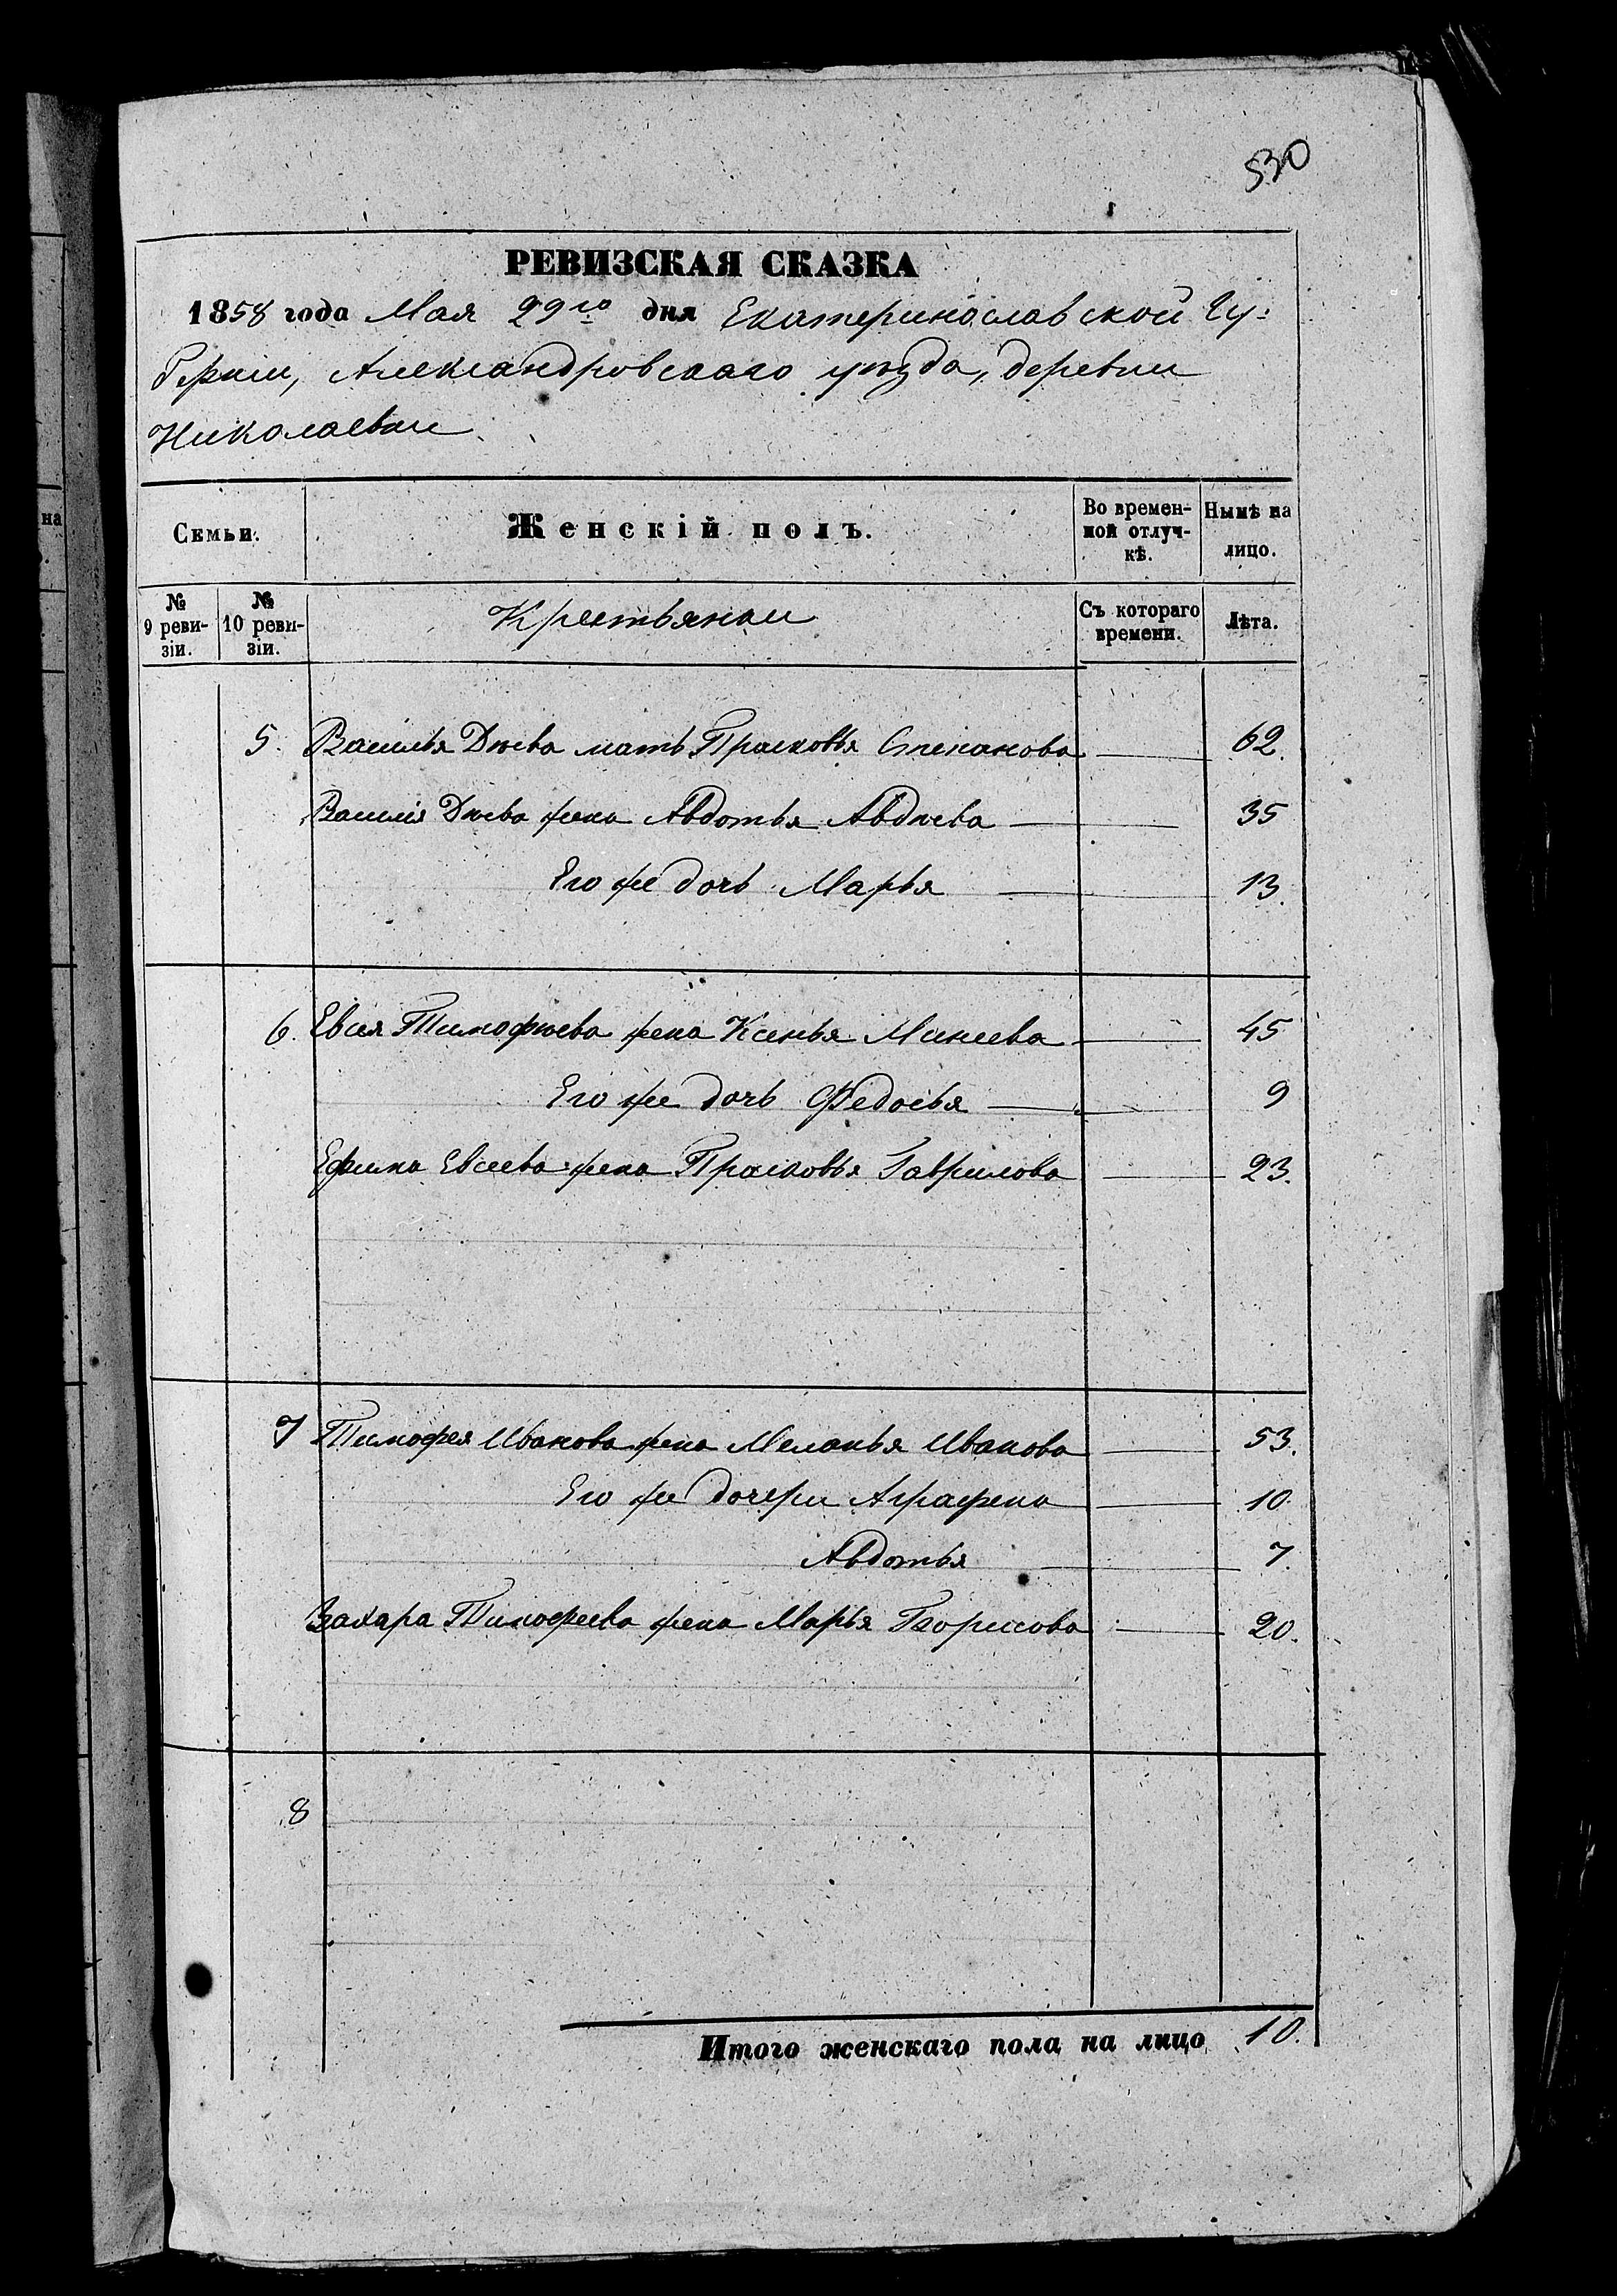 530
РЕВИЗСКАЯ СКАЗКА
1858 года Мая 29го дня Екатеринославской Гу-
берніи, Александровскаго уѣзда, деревни
Николаевки
Семьи. Женскій полъ. Во времен-ной отлуч-кѣ. Нынѣ на лицо.
№ 9 реви-зіи. № 10 реви-зіи. Крестьянки Съ котораго времени. Лѣта.
5. Василья Дѣева мать Прасковья Степанова 62.
Василія Дѣева жена Авдотья Авдѣева 35
Его же дочь Марья 13.
6. Евсея Тимофѣева жена Ксенья Минеева 45
Его же дочь Федосья 9
Ефима Евсеева жена Прасковья Гаврилова 23.
7 Тимофея Иванова жена Меланья Иванова 53.
Его же дочери Аграфена 10.
Авдотья 7.
Захара Тимофеева жена Марья Борисова 20.
8
Итого женскаго пола на лицо 10.
на